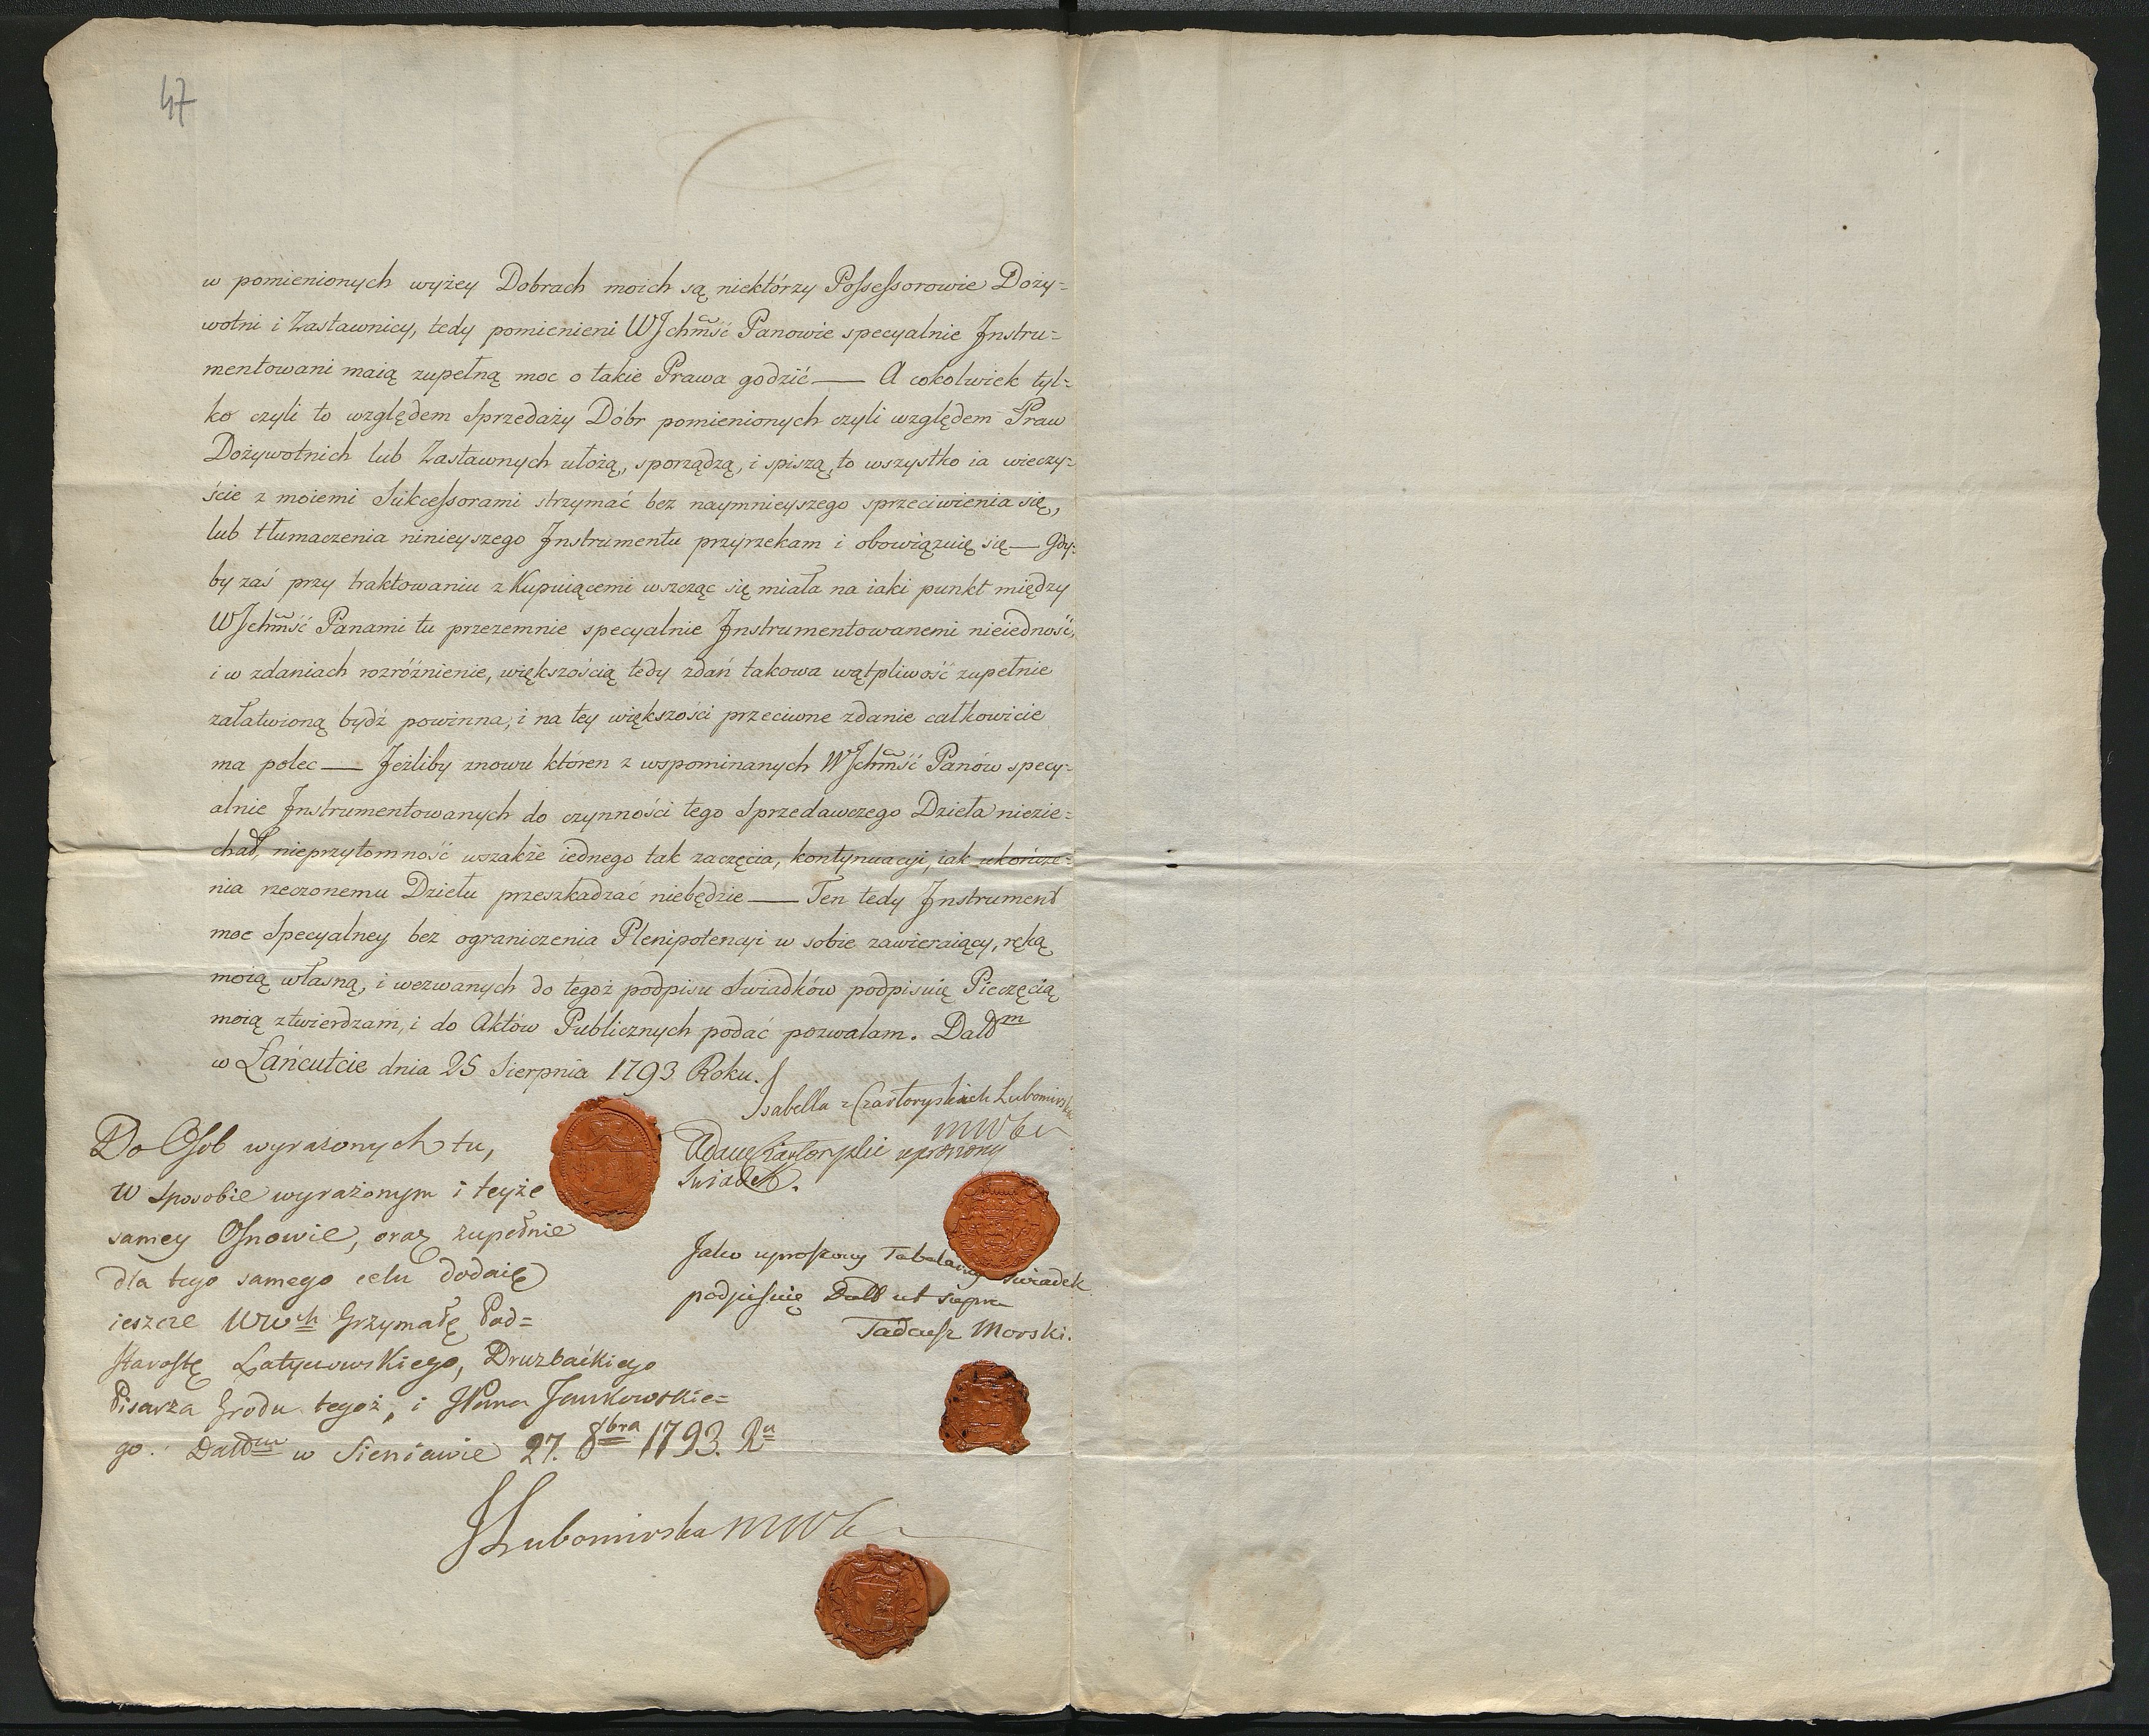 47
w pomienionych wyżey Dobrach moich są niektórzy Possessorowie Doży-
wotni i Zastawnicy, tedy pomienieni WJchmść Panowie specyalnie Jnstru-
mentowani maią zupełną moc o takie Prawa godzić — A cokolwiek tyl-
ko czyli to względem Sprzedaży Dóbr pomienionych czyli względem Praw
Dożywotnich lub Zastawnych ułożą, sporządzą, i spiszą, to wszystko ia wieczy-
ście z moiemi Sukcessorami strzymać bez naymnieyszego sprzeciwienia się,
lub tłumaczenia ninieyszego Jnstrumentu przyrzekam i obowiązuię się — Gdy-
by zaś przy traktowaniu z Kupuiącemi wszcząc się miała na iaki punkt między
WJchmść Panami tu przezemnie specyalnie Jnstrumentowanemi nieiedność,
i w zdaniach rozróżnienie, większością tedy zdań takowa wątpliwość zupełnie
załatwioną bydź powinna, i na tey większości przeciwne zdanie całkowicie
ma polec — Jeżliby znowu któren z wspominanych WJchmść Panów specy-
alnie Jnstrumentowanych do czynności tego Sprzedawczego Dzieła niezie-
chał, nieprzytomność wszakże iednego tak zaczęcia, kontynuacyi, iak ukończe-
nia rzeczonemu Dziełu przeszkadzać niebędzie — Ten tedy Jnstrument
moc Specyalney bez ograniczenia Plenipotencyi w sobie zawieraiący, ręką
moią własną, i wezwanych do tegoż podpisu Swiadków podpisuię Pieczęcią
moią ztwierdzam, i do Aktów Publicznych podać pozwalam. Datt<sup>m</sup>
w Łańcutcie dnia 25 Sierpnia 1793 Roku.
Isabella z Czartoryskich Lubomirska
mwł
Adam Czartoryski uproszony
Swiadek.
Jako uproszony Swiadek
podpisuię Datt ut supra
Tadeusz Morski.
Do Osob wyrażonych tu,
w Sposobie wyrażonym i teyże
samey Osnowie, oraz zupełnie
dla tego samego celu dodaię
ieszcze WW<sup>ch</sup> Grzymałę Pod-
Starostę Latyczowskiego, Druzbackiego
Pisarza Grodu tegoż, i JPana Jankowskie-
go. Datt<sup>m</sup> w Sieniawie 27. 8<sup>bra</sup> 1793. R<sup>u</sup>
JLubomirska mwł